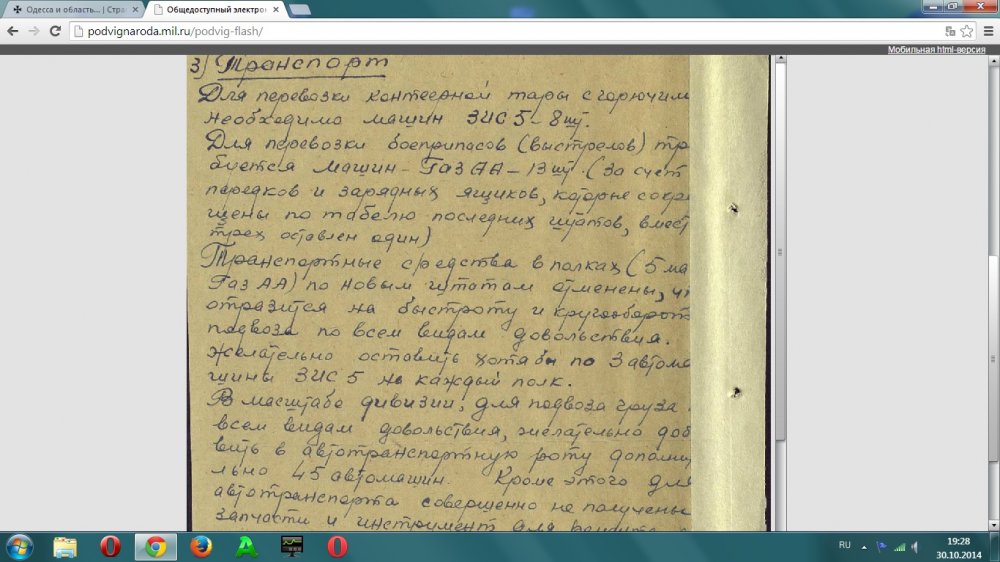 Одесса и область... | Стра
Общедоступный электрон
podvignaroda.mil.ru/podvig-flash/
Мобильная html-версия
3) Транспорт
Для перевозки контеерной тары с горючим
необходимо машин ЗИС 5 - 8 шт.
Для перевозки боеприпасов (выстрелов) тре
буется машин - Газ АА - 13 шт. (За счет
передков и зарядных ящиков, которые сокра
щены по табелю последних штатов, вмест
трех оставлен один)
Транспортные средства в полках (5 ма
Газ АА) по новым штатам отменены, чт
отразится на быстроту и кругооборот
подвоза по всем видам довольствия.
Желательно оставить хотя бы по 3 автома
шины ЗИС 5 на каждый полк.
В масштабе дивизии, для подвоза груза
всем видам довольствия, желательно доб
вить в автотранспортную роту дополни
льно 45 автомашин. Кроме этого для
автотранспорта совершенно не получены
запчасти и инструмент для
RU
19:28
30.10.2014